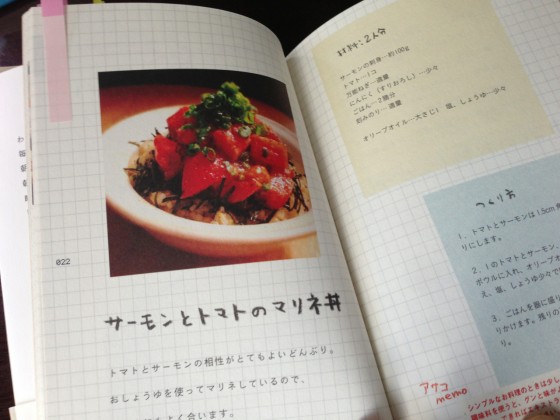 022
サーモンとトマトのマリネ丼
トマトとサーモンの相性がとてもよいどんぶり。
おしょうゆを使ってマリネしているので、
よく合います。
材料:2人分
サーモンの刺身―約100g
トマト―1コ
万能ねぎ―適量
にんにく(すりおろし)―少々
ごはん―2膳分
刻みのり―適量
オリーブオイル―大さじ1 塩、しょうゆ―少々
つくり方
1. トマトとサーモンは1.5cm
りにします。
2. 1のトマトとサーモン、
ボウルに入れ、オリーブオ
え、塩、しょうゆ少々で
3. ごはんを器に盛り
りかけます。残りの
アツコ
memo
シンプルなお料理のときは少し
調味料を使うと、グンと味が